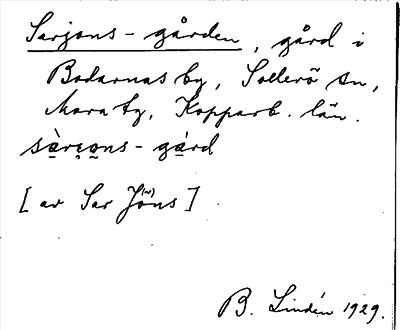 Sarjons-gården, gård i
Bodarnas by, Sollerö sn,
Mora tg, Kopparb. län.
sàrjons-gàrd
[ av Sar Jöns ]
B. Lindén 1929.